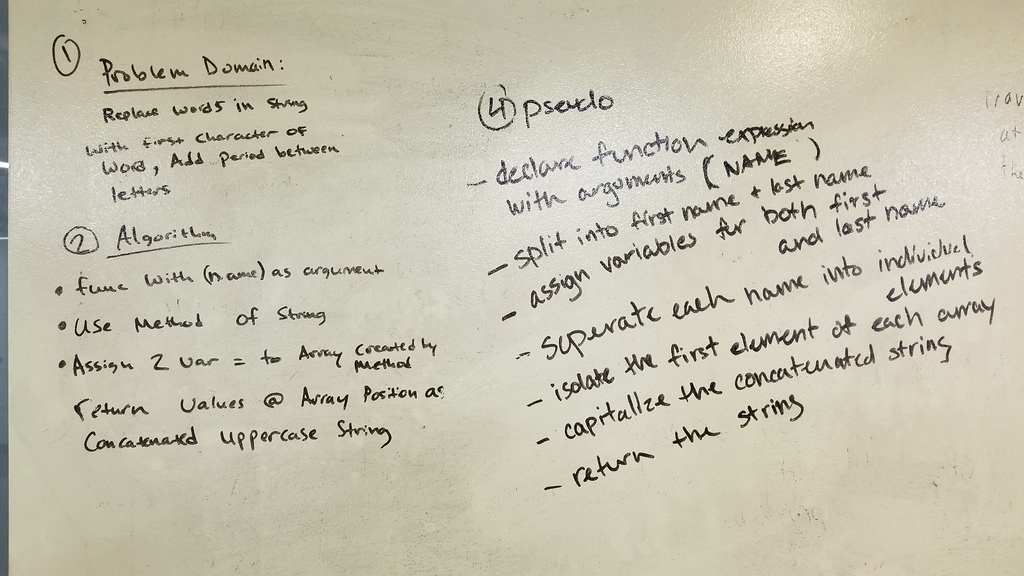 ①
Problem Domain:
Replace words in String
with First Character of
Word, Add period between
letters
② Algorithm
• Func with (name) as argument
• Use Method of String
• Assign 2 var = to Array Created by
Method
return values @ Array Position as
Concatenated Uppercase String
④ pseudo
- declare function - expression
with arguments (NAME)
- split into first name + last name
- assign variables for both first
and last name
- seperate each name into individual
elements
- isolate the first element of each array
- capitalize the concatenated string
- return the string
at